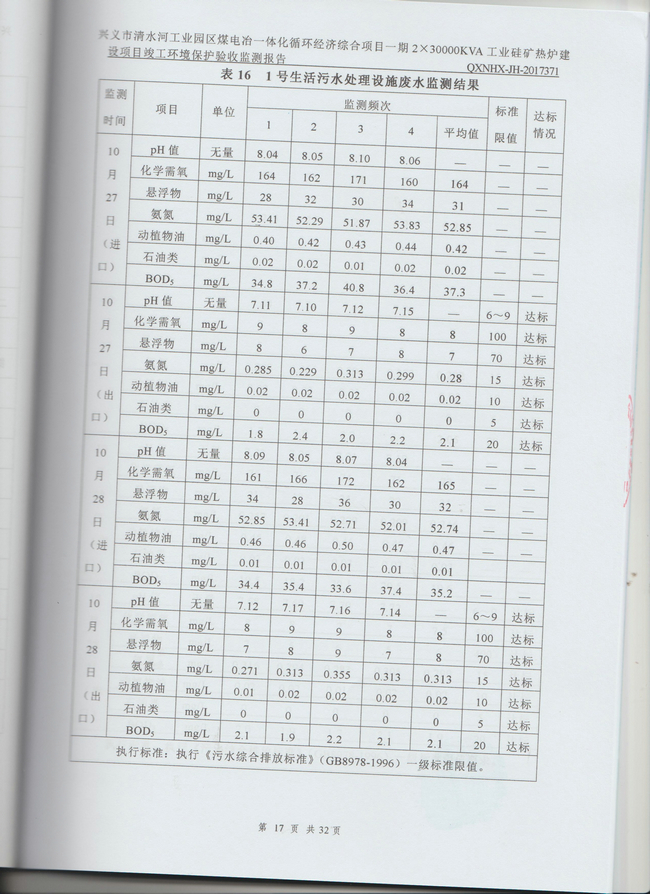 兴义市清水河工业园区煤电冶一体化循环经济综合项目一期 2×30000KVA 工业硅矿热炉建
设项目竣工环境保护验收监测报告 QXNHX-JH-2017371
表 16 1 号生活污水处理设施废水监测结果
监测时间 项目 单位 监测频次 标准限值 达标情况
1 2 3 4 平均值
10月27日（进口）
pH 值 无量 8.04 8.05 8.10 8.06 — — —
化学需氧 mg/L 164 162 171 160 164 — —
悬浮物 mg/L 28 32 30 34 31 — —
氨氮 mg/L 53.41 52.29 51.87 53.83 52.85 — —
动植物油 mg/L 0.40 0.42 0.43 0.44 0.42 — —
石油类 mg/L 0.02 0.02 0.01 0.02 0.02 — —
BOD₅ mg/L 34.8 37.2 40.8 36.4 37.3 — —
10月27日（出口）
pH 值 无量 7.11 7.10 7.12 7.15 — 6～9 达标
化学需氧 mg/L 9 8 9 8 8 100 达标
悬浮物 mg/L 8 6 7 8 7 70 达标
氨氮 mg/L 0.285 0.229 0.313 0.299 0.28 15 达标
动植物油 mg/L 0.02 0.02 0.02 0.02 0.02 10 达标
石油类 mg/L 0 0 0 0 0 5 达标
BOD₅ mg/L 1.8 2.4 2.0 2.2 2.1 20 达标
10月28日（进口）
pH 值 无量 8.09 8.05 8.07 8.04 — — —
化学需氧 mg/L 161 166 172 162 165 — —
悬浮物 mg/L 34 28 36 30 32 — —
氨氮 mg/L 52.85 53.41 52.71 52.01 52.74 — —
动植物油 mg/L 0.46 0.46 0.50 0.47 0.47 — —
石油类 mg/L 0.01 0.01 0.01 0.01 0.01
BOD₅ mg/L 34.4 35.4 33.6 37.4 35.2 — —
10月28日（出口）
pH 值 无量 7.12 7.17 7.16 7.14 — 6～9 达标
化学需氧 mg/L 8 9 9 8 8 100 达标
悬浮物 mg/L 7 8 9 7 8 70 达标
氨氮 mg/L 0.271 0.313 0.355 0.313 0.313 15 达标
动植物油 mg/L 0.01 0.02 0.02 0.02 0.02 10 达标
石油类 mg/L 0 0 0 0 0 5 达标
BOD₅ mg/L 2.1 1.9 2.2 2.1 2.1 20 达标
执行标准：执行《污水综合排放标准》（GB8978-1996）一级标准限值。
第 17 页 共 32 页